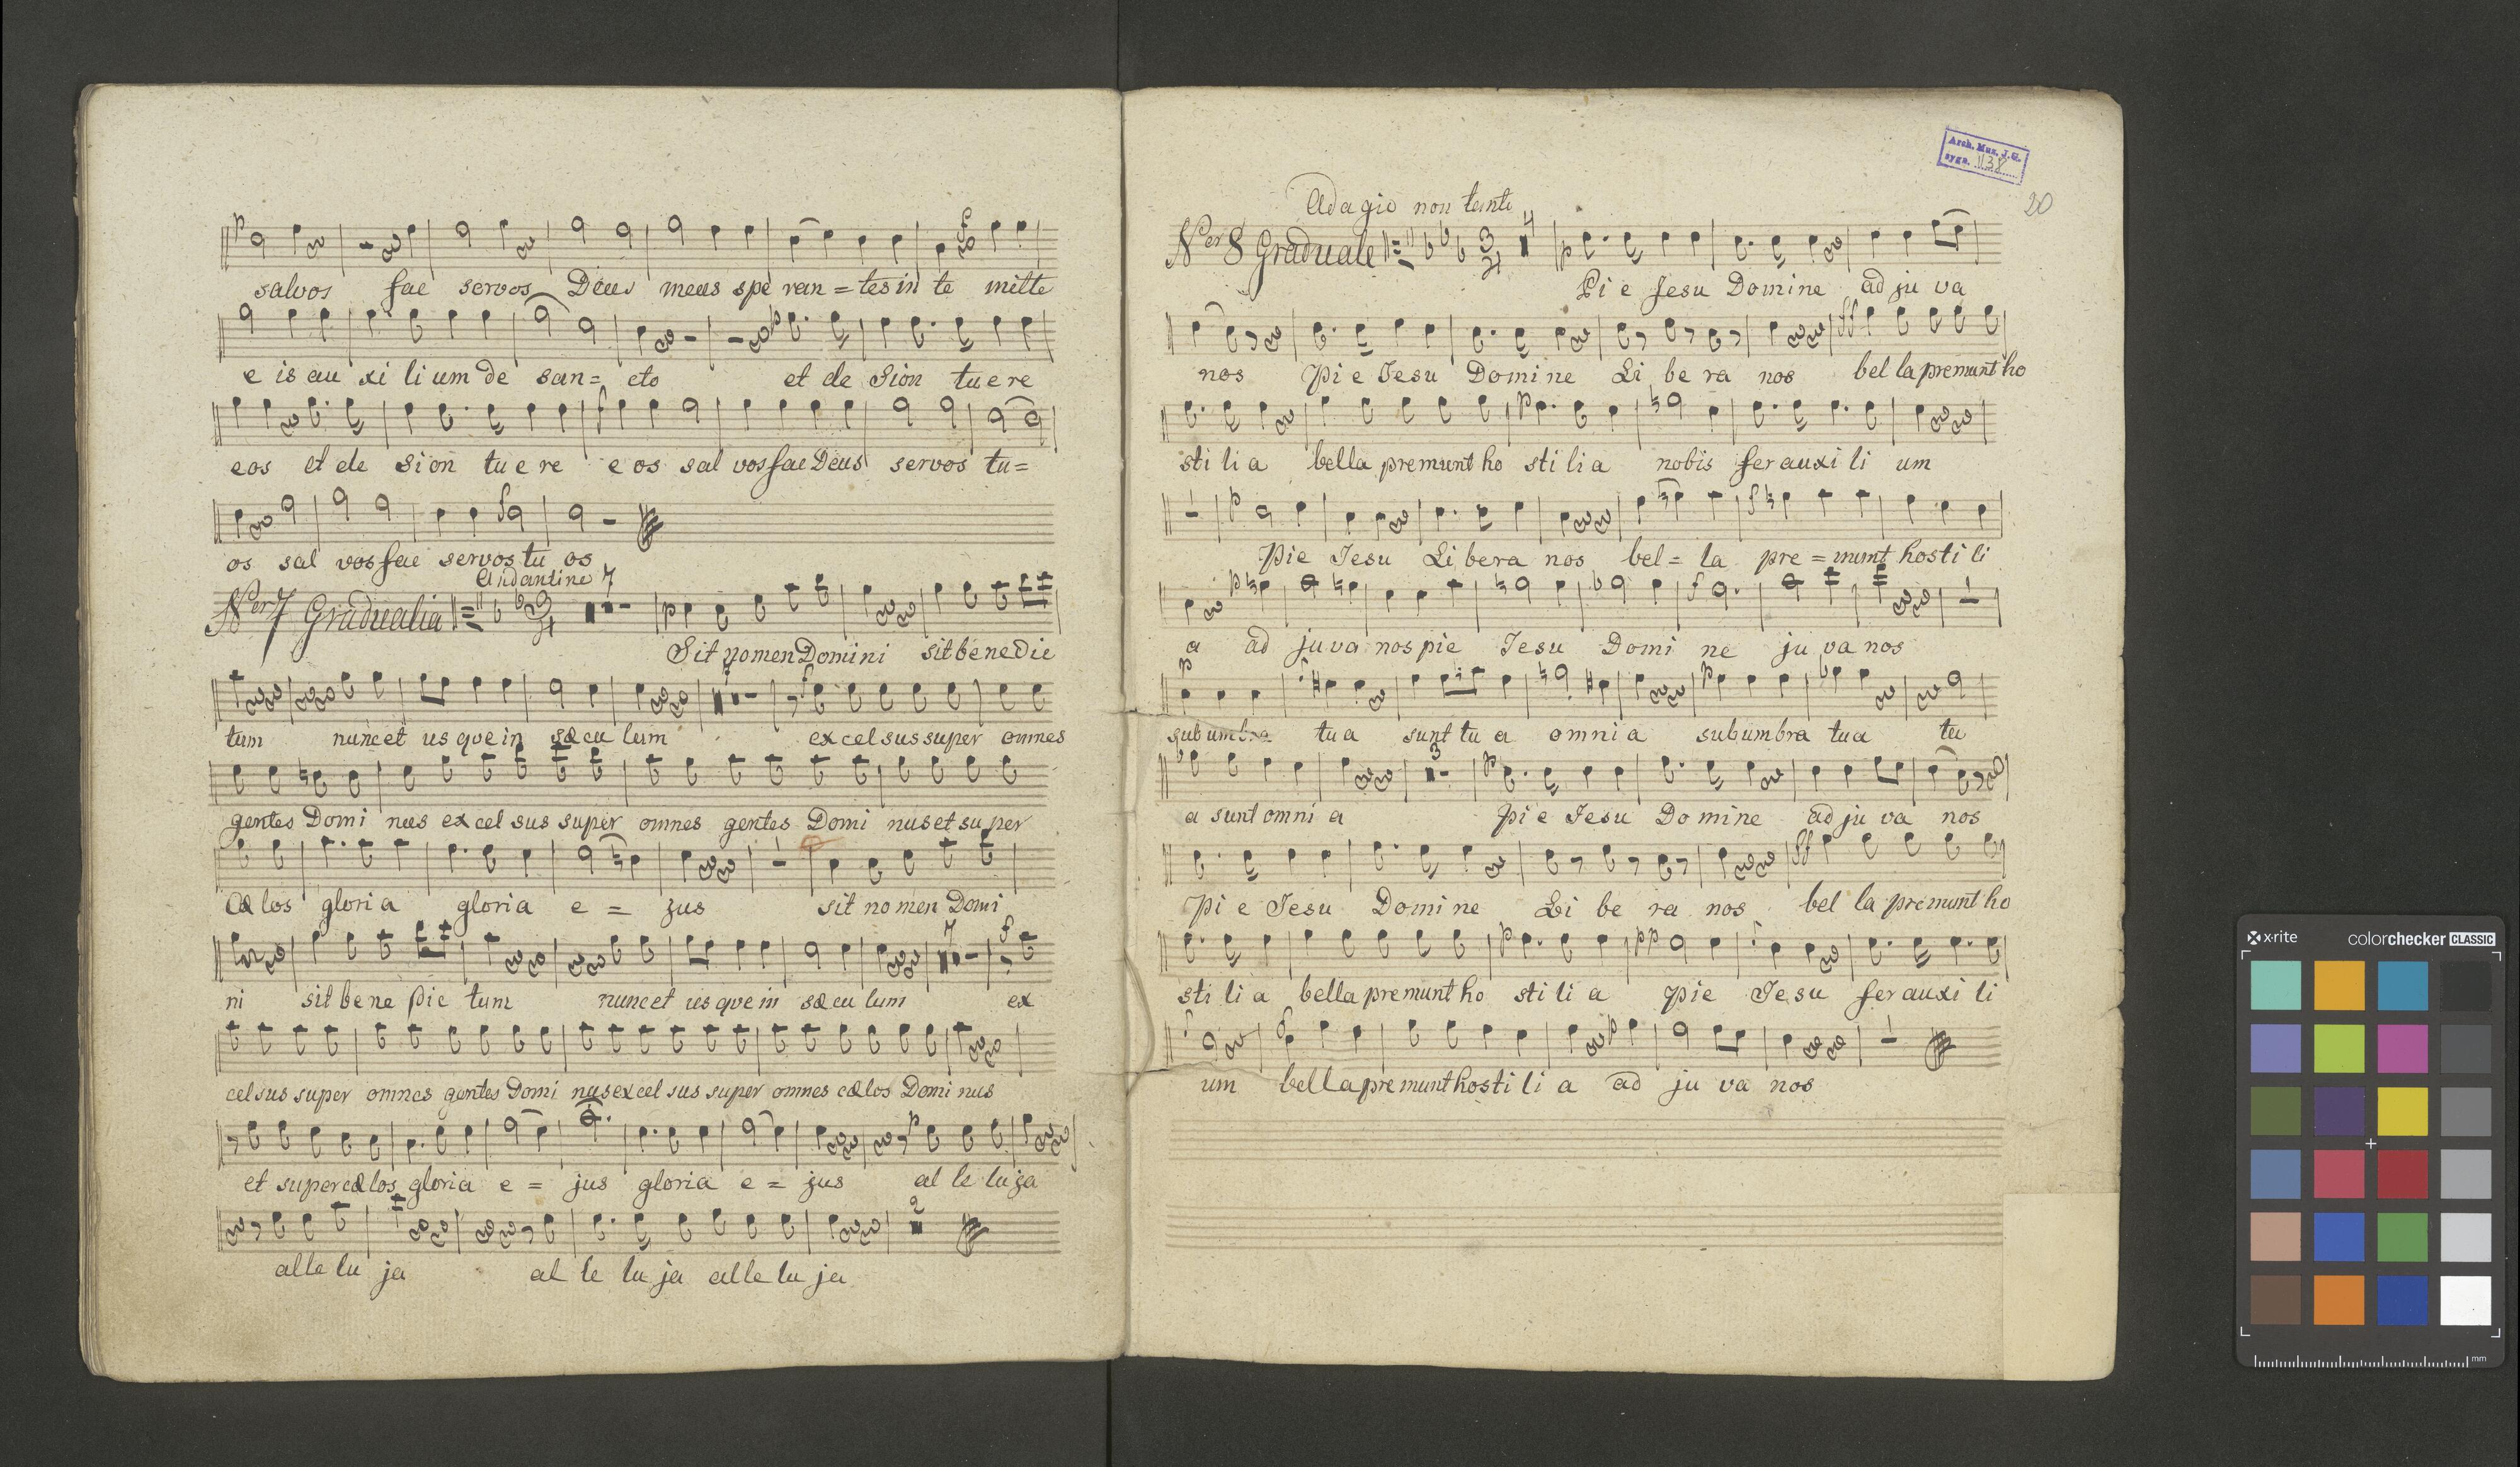 salvos fac servos Deus meus spe ran = tes in te mitte
e is au xi li um de san = cto et de Sion tu e re
eos et de Sion tu e re e os sal vos fac Deus servos tu =
os sal vos fac servos tu os
Andantine 7
Ner 7 Gradualia
Sit nomen Domini sit bene dic
tum nunc et us que in sæcu lum ex cel sus super omnes
gentes Domi nus ex cel sus super omnes gentes Domi nus et su per
cœ los gloria gloria e = jus sit no men Domi
ni sit bene dic tum nunc et us que in sæcu lum ex
cel sus super omnes gentes Domi nus ex cel sus super omnes cœlos Domi nus
et super cœ los gloria e = jus gloria e = jus al le lu ja
alle lu ja al le lu ja alle lu ja
Arch. Muz. J.G.
sygn. 1138
20
Adagio non tanto
Ner 8 Graduale 4
Pi e Jesu Domine ad ju va
nos Pi e Jesu Domi ne Li be ra nos bel la premunt ho
sti li a bella premunt ho sti li a nobis fer auxi li um
Pie Jesu Li bera nos bel = la pre = munt hosti li
a ad ju va nos pie Jesu Domi ne ju va nos
sub umbra tu a sunt tu a omni a sub umbra tua tu
a sunt omni a Pi e Jesu Do mi ne ad ju va nos
Pi e Jesu Domi ne Li be ra nos bel la premunt ho
sti li a bella premunt ho sti li a Pie Je su fer auxi li
um bella premunt hosti li a ad ju va nos
x-rite colorchecker CLASSIC
mm